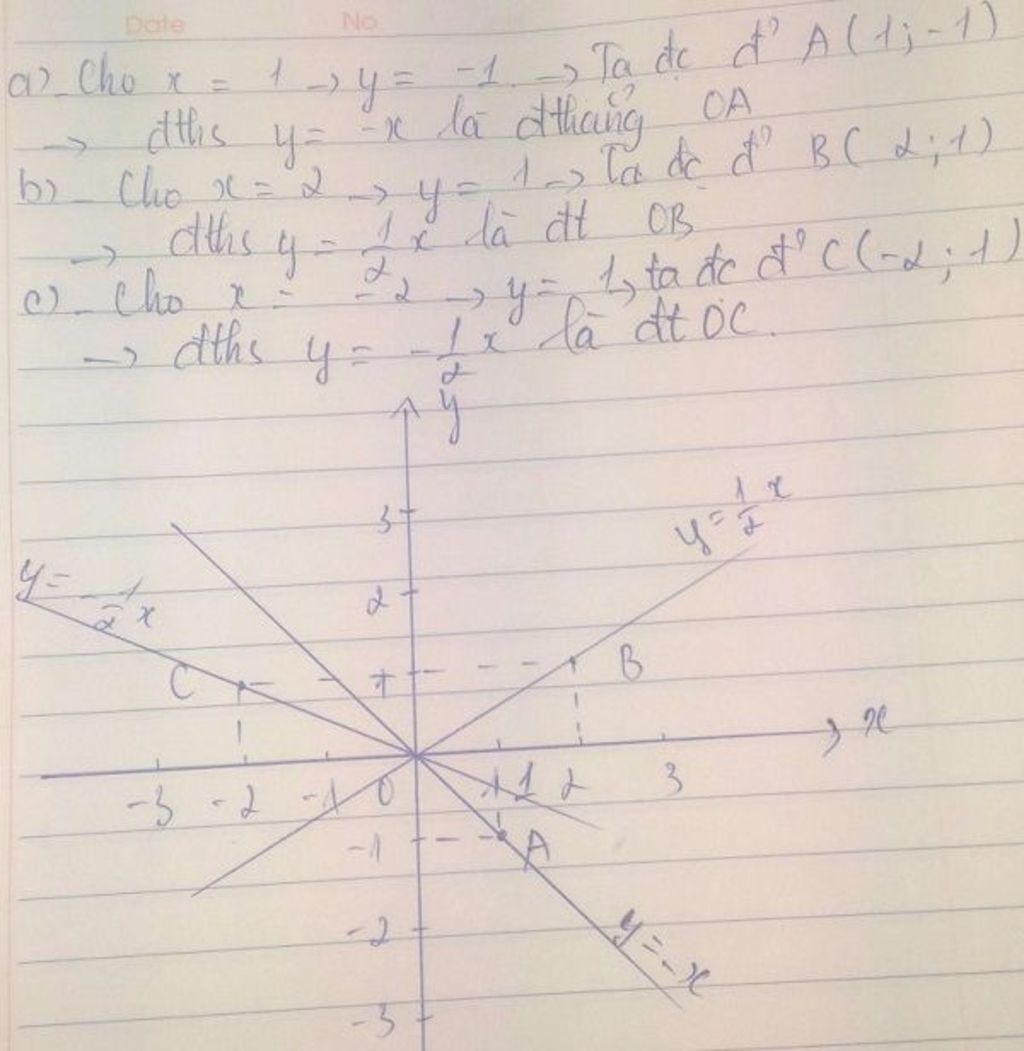 Date No
a)_ Cho x = 1 → y = -1 → Ta đc đ' A(1;-1)
→ đths y = -x là đthẳng OA
b)_ Cho x = 2 → y = 1 → Ta đc đ' B(2;1)
→ đths y = 1/2 x là đt OB
c)_ Cho x = -2 → y = 1, ta đc đ' C(-2;1)
→ đths y = -1/2 x là đt OC.
y
y = 1/2 x
3
y = -1/2 x
2
C 1 B
x
-3 -2 -1 0 1 2 3
-1 A
-2 y = -x
-3